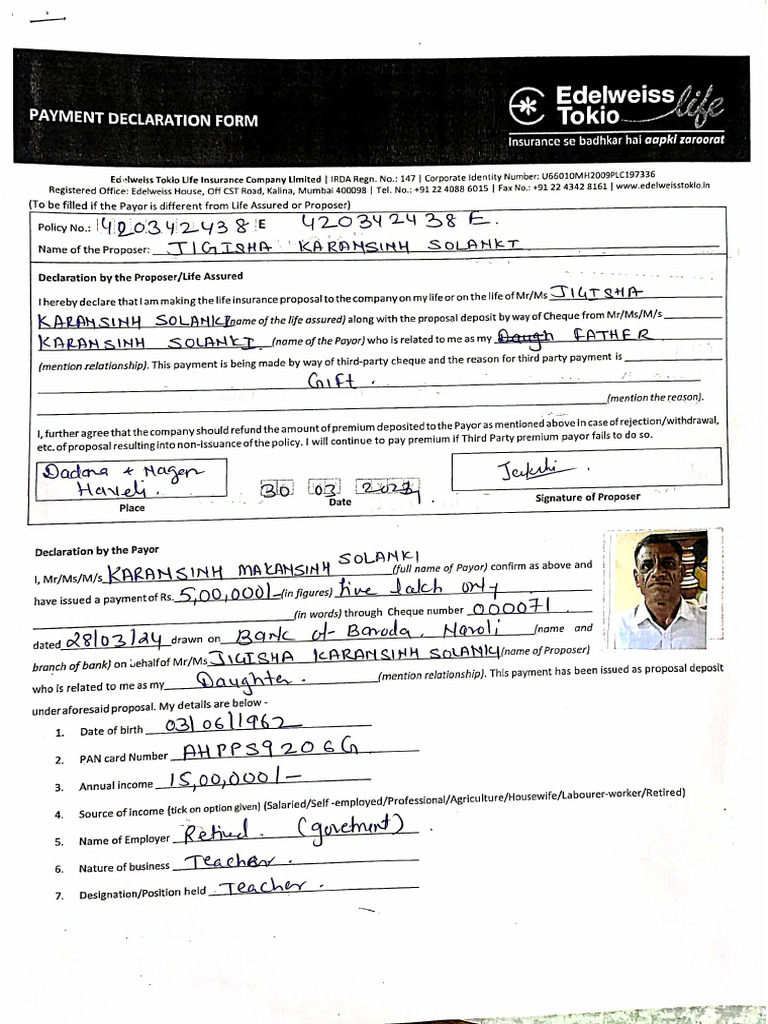 PAYMENT DECLARATION FORM
Edelweiss Tokio life
Insurance se badhkar hai aapki zaroorat
Edelweiss Tokio Life Insurance Company Limited | IRDA Regn. No.: 147 | Corporate Identity Number: U66010MH2009PLC197336
Registered Office: Edelweiss House, Off CST Road, Kalina, Mumbai 400098 | Tel. No.: +91 22 4088 6015 | Fax No.: +91 22 4342 8161 | www.edelweisstokio.in
(To be filled if the Payor is different from Life Assured or Proposer)
Policy No.: 420342438 E 420342438E.
Name of the Proposer: JIGISHA KARANSINH SOLANKI
Declaration by the Proposer/Life Assured
I hereby declare that I am making the life insurance proposal to the company on my life or on the life of Mr/Ms JIGISHA
KARANSINH SOLANKI (name of the life assured) along with the proposal deposit by way of Cheque from Mr/Ms/M/s
KARANSINH SOLANKI. (name of the Payor) who is related to me as my Daugh FATHER
(mention relationship). This payment is being made by way of third-party cheque and the reason for third party payment is
Gift.
(mention the reason).
I, further agree that the company should refund the amount of premium deposited to the Payor as mentioned above in case of rejection/withdrawal,
etc. of proposal resulting into non-issuance of the policy. I will continue to pay premium if Third Party premium payor fails to do so.
Dadra + Nager
Haveli.
30 03 2024
Place
Date
Signature of Proposer
Declaration by the Payor
I, Mr/Ms/M/s KARANSINH MAKANSINH SOLANKI (full name of Payor) confirm as above and
have issued a payment of Rs. 5,00,000/- (in figures) five lakh only
(in words) through Cheque number 000071.
dated 28/03/24 drawn on Bank of Baroda, Naroli (name and
branch of bank) on behalf of Mr/Ms JIGISHA KARANSINH SOLANKI (name of Proposer)
who is related to me as my Daughter. (mention relationship). This payment has been issued as proposal deposit
under aforesaid proposal. My details are below -
1. Date of birth 03/06/1962
2. PAN card Number AHPPS9206G
3. Annual income 15,00,000/-
4. Source of income (tick on option given) (Salaried/Self-employed/Professional/Agriculture/Housewife/Labourer-worker/Retired)
5. Name of Employer Retired. (goverment)
6. Nature of business Teacher.
7. Designation/Position held Teacher.